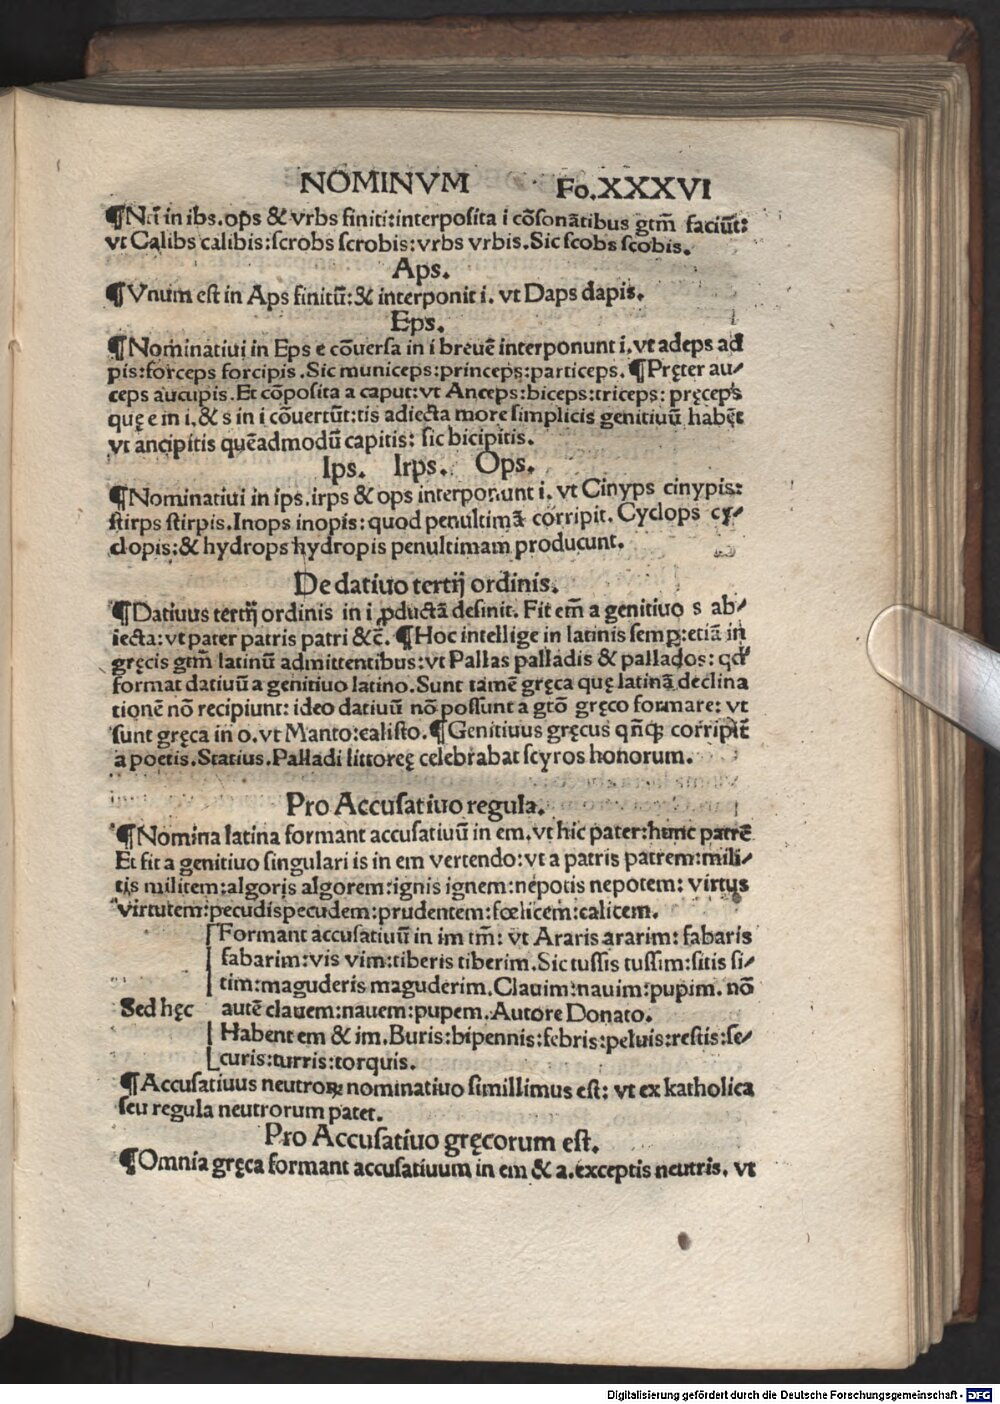 NOMINVM Fo.XXXVI
¶Nā in ibs.ops & vrbs finiti:interposita i cōsonātibus gtm̄ faciūt:
vt Calibs calibis:scrobs scrobis:vrbs vrbis.Sic scobs scobis.
Aps.
¶Vnum est in Aps finitū:& interponit i. vt Daps dapis.
Eps.
¶Nominatiui in Eps e cōuersa in i breuē interponunt i.vt adeps adi
pis:forceps forcipis.Sic municeps:princeps:particeps.¶Pręter au/
ceps aucupis.Et cōposita a caput:vt Anceps:biceps:triceps: pręceps
quę e in i.& s in i cōuertūt:tis adiecta more simplicis genitiuū habēt
vt ancipitis quēadmodū capitis: sic bicipitis.
Ips. Irps. Ops.
¶Nominatiui in ips.irps & ops interponunt i. vt Cinyps cinypis:
stirps stirpis.Inops inopis:quod penultimā corripit. Cyclops cy/
clopis:& hydrops hydropis penultimam producunt.
De datiuo tertij ordinis.
¶Datiuus tertij ordinis in i ꝓductā desinit. Fit em̄ a genitiuo s ab/
iecta:vt pater patris patri &c̄. ¶Hoc intellige in latinis semꝑ:etiā in
gręcis gtm̄ latinū admittentibus:vt Pallas palladis & pallados: qđ
format datiuū a genitiuo latino.Sunt tamē gręca quę latinā declina
tionē nō recipiunt: ideo datiuū nō possunt a gtō gręco formare: vt
sunt gręca in o.vt Manto:calisto.¶Genitiuus gręcus qn̄qꝫ corripit̄
a poetis.Statius.Palladi littoreę celebrabat scyros honorum.
Pro Accusatiuo regula.
¶Nomina latina formant accusatiuū in em.vt hic pater:hunc patrē
Et fit a genitiuo singulari is in em vertendo:vt a patris patrem:mili/
tis militem:algoris algorem:ignis ignem:nepotis nepotem: virtus
virtutem:pecudis pecudem:prudentem:fœlicem:calicem.
Formant accusatiuū in im tm̄: vt Araris ararim: fabaris
fabarim:vis vim:tiberis tiberim.Sic tussis tussim:sitis si/
tim:maguderis maguderim.Clauim:nauim:pupim. nō
Sed hęc autē clauem:nauem:pupem.Autore Donato.
Habent em & im.Buris:bipennis:febris:peluis:restis:se/
curis:turris:torquis.
¶Accusatiuus neutroꝝ nominatiuo simillimus est: vt ex katholica
seu regula neutrorum patet.
Pro Accusatiuo gręcorum est.
¶Omnia gręca formant accusatiuum in em & a.exceptis neutris. vt
Digitalisierung gefördert durch die Deutsche Forschungsgemeinschaft - DFG